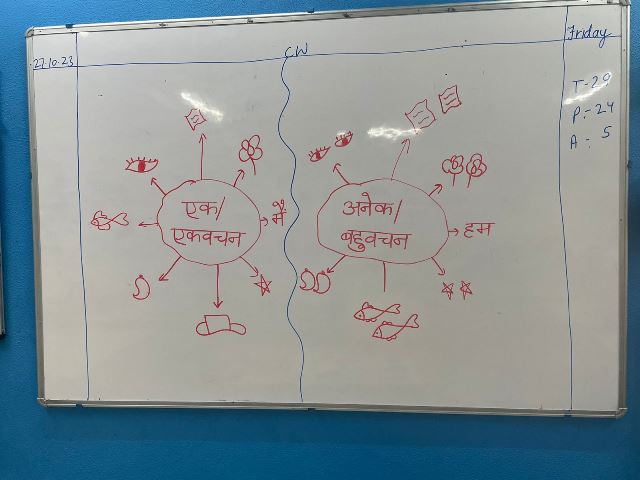 27.10.23
CW
Friday
T-29
P:-24
A: 5
एक/
एकवचन
मैं
अनेक/
बहुवचन
हम